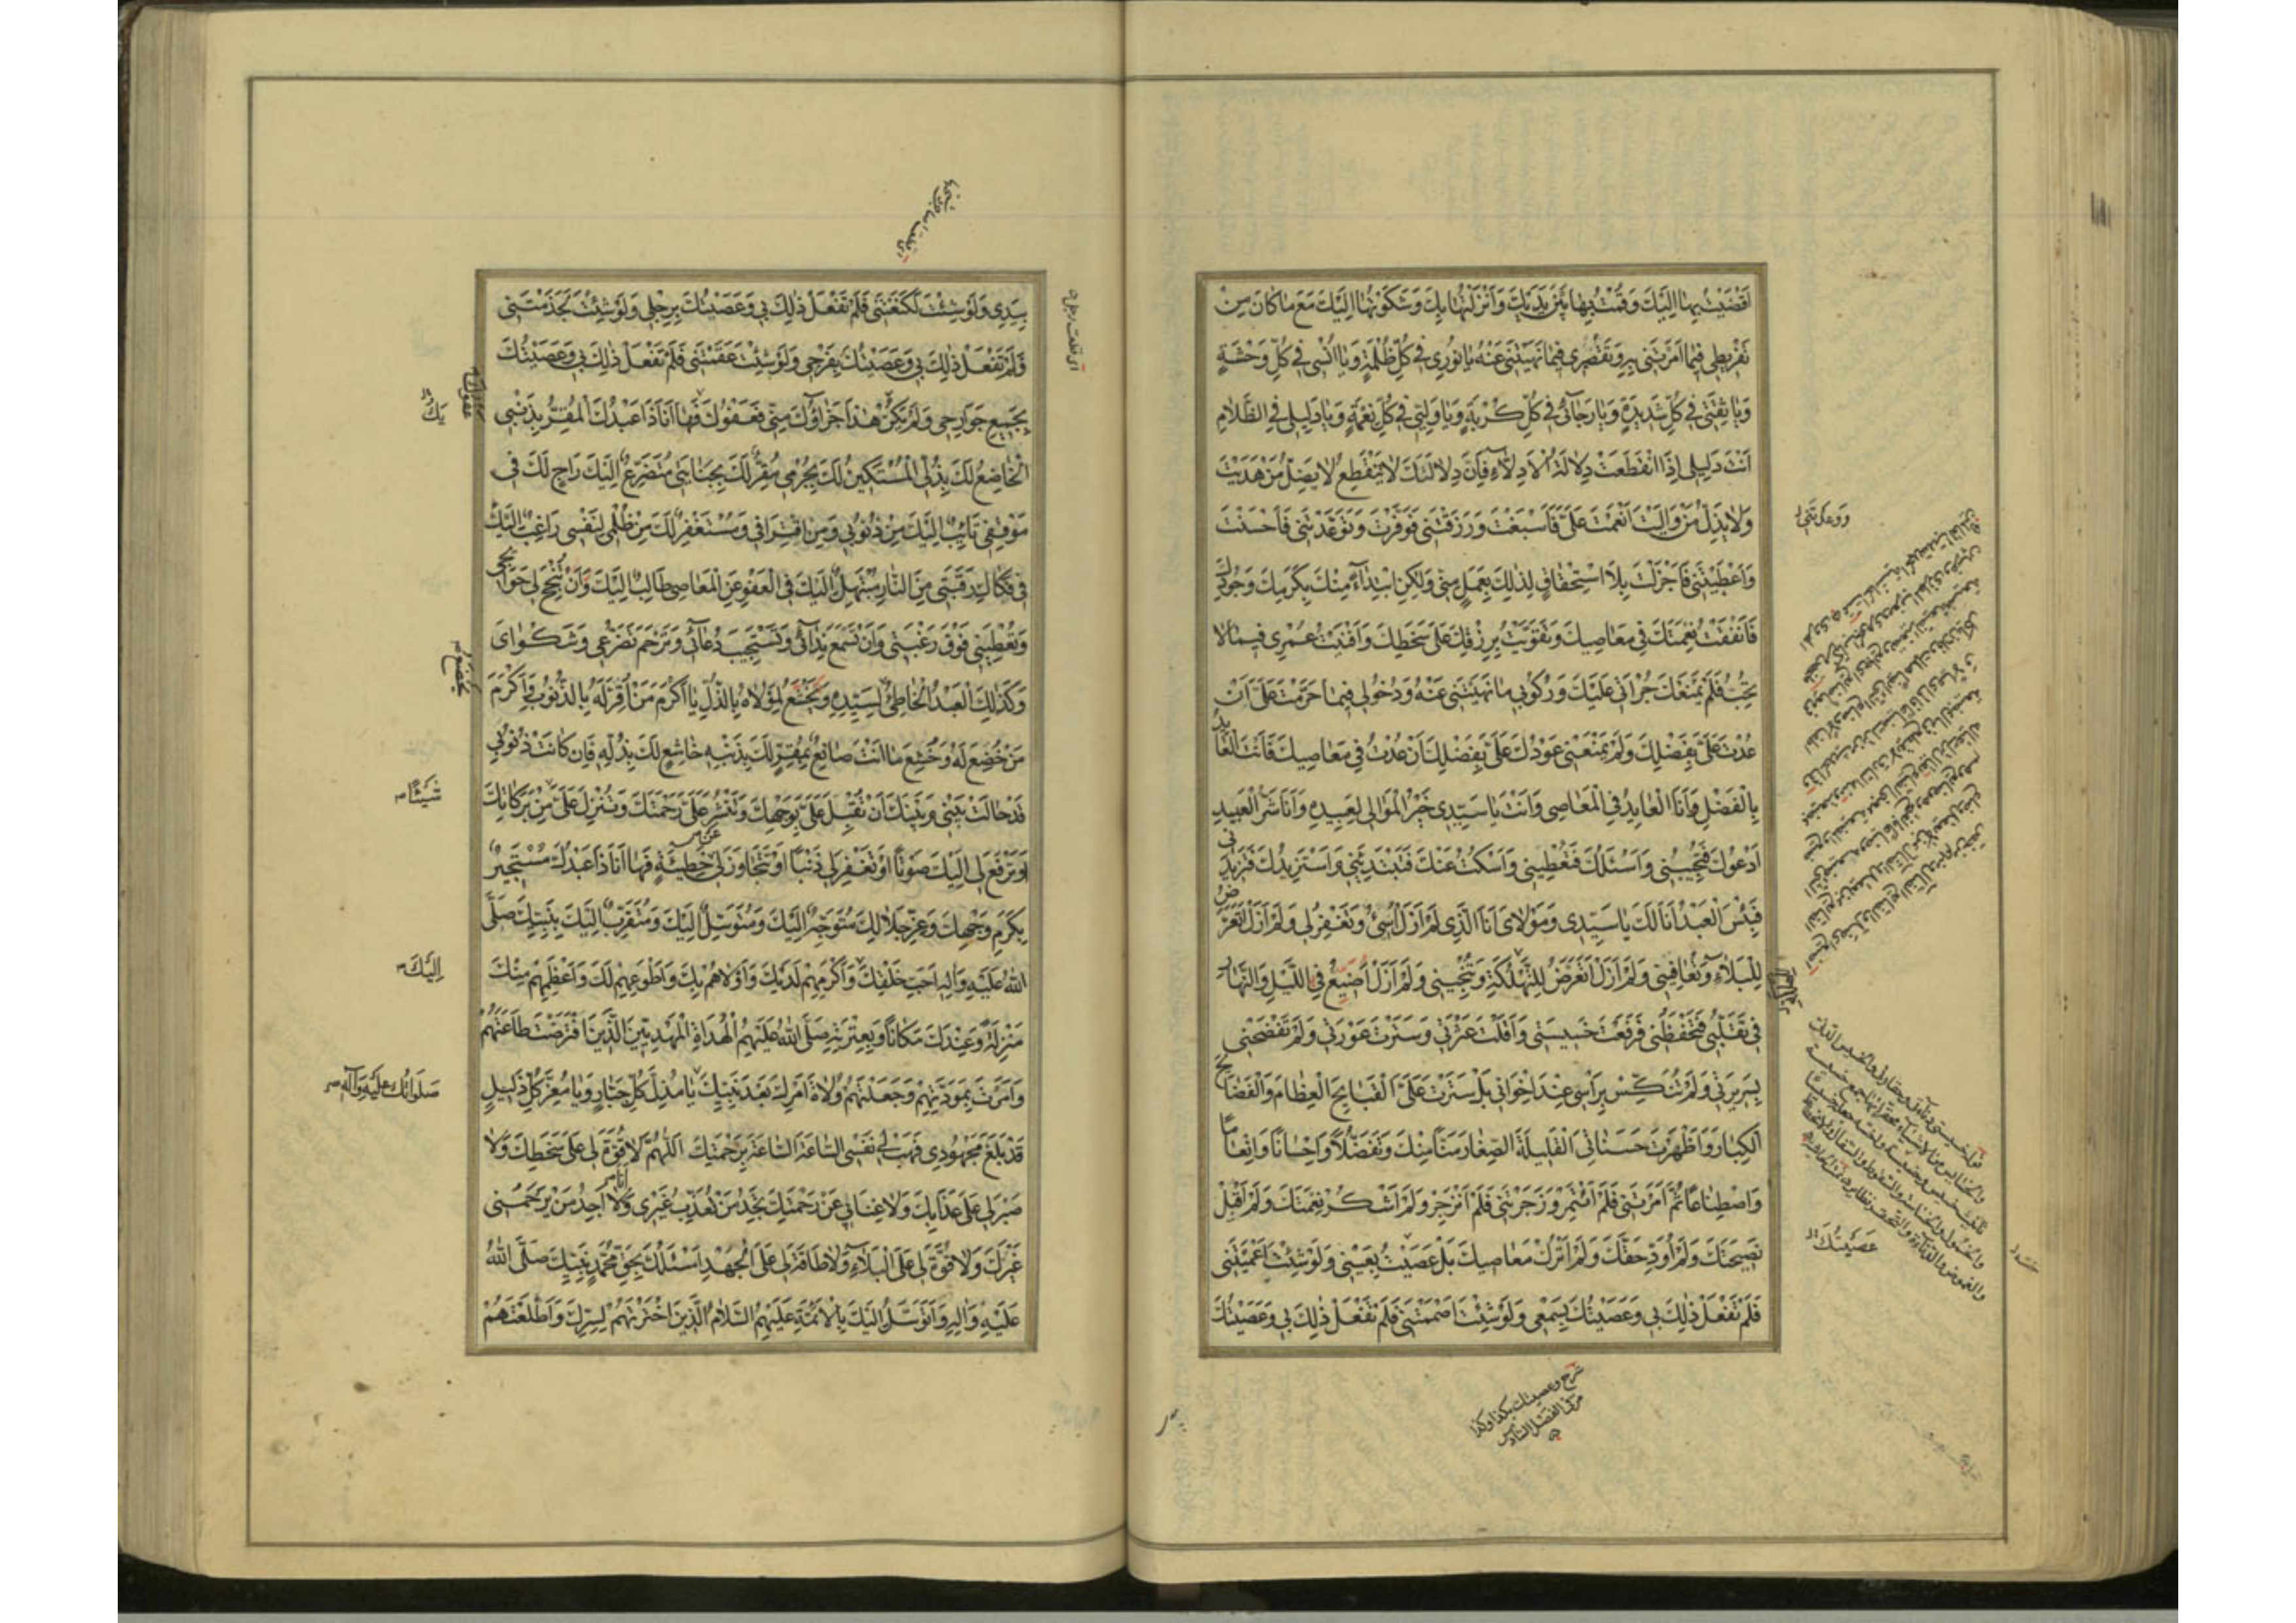 اَفْضَيْتُ بِهَا اِلَيْكَ وَقُمْتُ بِهَا بَيْنَ يَدَيْكَ وَاَنْزَلْتُهَا بِكَ وَشَكَوْتُهَا اِلَيْكَ مَعَ مَا كَانَ مِنْ
تَفْرِيطِي فِيمَا اَمَرْتَنِي بِهِ وَتَقْصِيرِي فِيمَا نَهَيْتَنِي عَنْهُ يَا نُورِي فِي كُلِّ ظُلْمَةٍ وَيَا اُنْسِي فِي كُلِّ وَحْشَةٍ
وَيَا ثِقَتِي فِي كُلِّ شَدِيدَةٍ وَيَا رَجَائِي فِي كُلِّ كُرْبَةٍ وَيَا وَلِيِّي فِي كُلِّ نِعْمَةٍ وَيَا دَلِيلِي فِي الظَّلَامِ
اَنْتَ دَلِيلِي اِذَا انْقَطَعَتْ دِلَالَةُ الْاَدِلَّاءِ فَاِنَّ دِلَالَتَكَ لَا يَنْقَطِعُ لَا يَضِلُّ مَنْ هَدَيْتَ
وَلَا يَذِلُّ مَنْ وَالَيْتَ اَنْعَمْتَ عَلَيَّ فَاَسْبَغْتَ وَرَزَقْتَنِي فَوَفَّرْتَ وَتَوَعَّدْتَنِي فَاَحْسَنْتَ
وَاَعْطَيْتَنِي فَاَجْزَلْتَ بِلَا اسْتِحْقَاقٍ لِذٰلِكَ بِعَمَلٍ مِنِّي وَلٰكِنِ ابْتِدَاءً مِنْكَ بِكَرَمِكَ وَجُودِكَ
فَاَنْفَقْتُ نِعْمَتَكَ فِي مَعَاصِيكَ وَتَقَوَّيْتُ بِرِزْقِكَ عَلَى سَخَطِكَ وَاَفْنَيْتُ عُمْرِي فِيمَا لَا
تُحِبُّ فَلَمْ يَمْنَعْكَ جُرْاَتِي عَلَيْكَ وَرُكُوبِي مَا نَهَيْتَنِي عَنْهُ وَدُخُولِي فِيمَا حَرَّمْتَ عَلَيَّ اَنْ
عُدْتَ عَلَيَّ بِفَضْلِكَ وَلَمْ يَمْنَعْنِي عَوْدُكَ عَلَيَّ بِفَضْلِكَ اَنْ عُدْتُ فِي مَعَاصِيكَ فَاَنْتَ الْعَائِدُ
بِالْفَضْلِ وَاَنَا الْعَايِدُ فِي الْمَعَاصِي وَاَنْتَ يَا سَيِّدِي خَيْرُ الْمَوَالِي لِعَبِيدِهِ وَاَنَا شَرُّ الْعَبِيدِ
اَدْعُوكَ فَتُجِيبُنِي وَاَسْئَلُكَ فَتُعْطِينِي وَاَسْكُتُ عَنْكَ فَتَبْتَدِئُنِي وَاَسْتَزِيدُكَ فَتَزِيدُنِي
فَبِئْسَ الْعَبْدُ اَنَا لَكَ يَا سَيِّدِي وَمَوْلَايَ اَنَا الَّذِي لَمْ اَزَلْ اُسِئُ وَتَغْفِرُ لِي وَلَمْ اَزَلْ اَتَعَرَّضُ
لِلْبَلَاءِ وَتُعَافِينِي وَلَمْ اَزَلْ اَتَعَرَّضُ لِلتَّهْلُكَةِ وَتُنْجِينِي وَلَمْ اَزَلْ اُضَيِّعُ فِي اللَّيْلِ وَالنَّهَارِ
فِي تَقَلُّبِي فَتَحْفَظُنِي فَرَفَعْتَ خَسِيسَتِي وَاَقَلْتَ عَثْرَتِي وَسَتَرْتَ عَوْرَتِي وَلَمْ تَفْضَحْنِي
بِسَرِيرَتِي وَلَمْ تُنَكِّسْ بِرَاْسِي عِنْدَ اِخْوَانِي بَلْ سَتَرْتَ عَلَيَّ الْقَبَايِحَ الْعِظَامَ وَالْفَضَايِحَ
الْكِبَارَ وَاَظْهَرْتَ حَسَنَاتِيَ الْقَلِيلَةَ الصِّغَارَ مَنًّا مِنْكَ وَتَفَضُّلًا وَاِحْسَانًا وَاِنْعَامًا
وَاصْطِنَاعًا ثُمَّ اَمَرْتَنِي فَلَمْ اَئْتَمِرْ وَزَجَرْتَنِي فَلَمْ اَنْزَجِرْ وَلَمْ اَشْكُرْ نِعْمَتَكَ وَلَمْ اَقْبَلْ
نَصِيحَتَكَ وَلَمْ اُؤَدِّ حَقَّكَ وَلَمْ اَتْرُكْ مَعَاصِيكَ بَلْ عَصَيْتُ بِعَيْنِي وَلَوْ شِئْتَ اَعْمَيْتَنِي
فَلَمْ تَفْعَلْ ذٰلِكَ بِي وَعَصَيْتُكَ بِسَمْعِي وَلَوْ شِئْتَ اَصْمَمْتَنِي فَلَمْ تَفْعَلْ ذٰلِكَ بِي وَعَصَيْتُكَ
وَوَعَدْتَنِي
عَصَيْتُكَ
شرح وعصيتك بكذا وكذا
بِيَدِي وَلَوْ شِئْتَ لَكَنَّعْتَنِي فَلَمْ تَفْعَلْ ذٰلِكَ بِي وَعَصَيْتُكَ بِرِجْلِي وَلَوْ شِئْتَ لَجَذَمْتَنِي
فَلَمْ تَفْعَلْ ذٰلِكَ بِي وَعَصَيْتُكَ بِفَرْجِي وَلَوْ شِئْتَ عَقَمْتَنِي فَلَمْ تَفْعَلْ ذٰلِكَ بِي وَعَصَيْتُكَ
بِجَمِيعِ جَوَارِحِي وَلَمْ يَكُنْ هٰذَا جَزَاؤُكَ مِنِّي فَعَفْوُكَ فَهَا اَنَا ذَا عَبْدُكَ الْمُقِرُّ بِذَنْبِي
الْخَاضِعُ لَكَ بِذُلِّي الْمُسْتَكِينُ لَكَ بِجُرْمِي مُقِرٌّ لَكَ بِجِنَايَتِي مُتَضَرِّعٌ اِلَيْكَ رَاجٍ لَكَ فِي
مَوْقِفِي تَائِبٌ اِلَيْكَ مِنْ ذُنُوبِي وَمِنِ اقْتِرَافِي وَمُسْتَغْفِرٌ لَكَ مِنْ ظُلْمِي لِنَفْسِي رَاغِبٌ اِلَيْكَ
فِي فَكَاكِ رَقَبَتِي مِنَ النَّارِ مُبْتَهِلٌ اِلَيْكَ فِي الْعَفْوِ عَنِ الْمَعَاصِي طَالِبٌ اِلَيْكَ وَاَنْ تُنْجِحَ لِي حَوَائِجِي
وَتُعْطِيَنِي فَوْقَ رَغْبَتِي وَاَنْ تَسْمَعَ نِدَائِي وَتَسْتَجِيبَ دُعَائِي وَتَرْحَمَ تَضَرُّعِي وَشَكْوَايَ
وَكَذٰلِكَ الْعَبْدُ الْخَاطِئُ لِسَيِّدِهِ وَيَخْشَعُ لِمَوْلَاهُ بِالذُّلِّ يَا اَكْرَمَ مَنْ اُقِرَّ لَهُ بِالذُّنُوبِ وَاَكْرَمَ
مَنْ خُضِعَ لَهُ وَخُشِعَ مَا اَنْتَ صَانِعٌ بِمُقِرٍّ لَكَ بِذَنْبِهِ خَاشِعٍ لَكَ بِذُلِّهِ فَاِنْ كَانَتْ ذُنُوبِي
قَدْ حَالَتْ بَيْنِي وَبَيْنَكَ اَنْ تُقْبِلَ عَلَيَّ بِوَجْهِكَ وَتَنْشُرَ عَلَيَّ رَحْمَتَكَ وَتُنْزِلَ عَلَيَّ مِنْ بَرَكَاتِكَ
اَوْ تَرْفَعَ لِي اِلَيْكَ صَوْتًا اَوْ تَغْفِرَ لِي ذَنْبًا اَوْ تَتَجَاوَزَ لِي خَطِيئَةٍ فَهَا اَنَا ذَا عَبْدُكَ مُسْتَجِيرٌ
بِكَرَمِ وَجْهِكَ وَعِزِّ جَلَالِكَ مُتَوَجِّهٌ اِلَيْكَ وَمُتَوَسِّلٌ اِلَيْكَ وَمُتَقَرِّبٌ اِلَيْكَ بِنَبِيِّكَ صَلَّى
اللهُ عَلَيْهِ وَآلِهِ اَحَبِّ خَلْقِكَ وَاَكْرَمِهِمْ لَدَيْكَ وَاَوْلَاهُمْ بِكَ وَاَطْوَعِهِمْ لَكَ وَاَعْظَمِهِمْ مِنْكَ
مَنْزِلَةً وَعِنْدَكَ مَكَانًا وَبِعِتْرَتِهِ صَلَّى اللهُ عَلَيْهِمُ الْهُدَاةِ الْمَهْدِيِّينَ الَّذِينَ افْتَرَضْتَ طَاعَتَهُمْ
وَاَمَرْتَ بِمَوَدَّتِهِمْ وَجَعَلْتَهُمْ وُلَاةَ اَمْرِكَ بَعْدَ نَبِيِّكَ يَا مُذِلَّ كُلِّ جَبَّارٍ وَيَا مُعِزَّ كُلِّ ذَلِيلٍ
قَدْ بَلَغَ مَجْهُودِي فَهَبْ لِي نَفْسِي السَّاعَةَ السَّاعَةَ بِرَحْمَتِكَ اَللّٰهُمَّ لَا قُوَّةَ لِي عَلَى سَخَطِكَ وَلَا
صَبْرَ لِي عَلَى عَذَابِكَ وَلَا غِنَا بِي عَنْ رَحْمَتِكَ تَجِدُ مَنْ تُعَذِّبُ غَيْرِي وَلَا اَجِدُ مَنْ يَرْحَمُنِي
غَيْرَكَ وَلَا قُوَّةَ لِي عَلَى الْبَلَاءِ وَلَا طَاقَةَ لِي عَلَى الْجَهْدِ اَسْئَلُكَ بِحَقِّ مُحَمَّدٍ نَبِيِّكَ صَلَّى اللهُ
عَلَيْهِ وَآلِهِ وَاَتَوَسَّلُ اِلَيْكَ بِالْاَئِمَّةِ عَلَيْهِمُ السَّلَامُ الَّذِينَ اخْتَرْتَهُمْ لِسِرِّكَ وَاَطْلَعْتَهُمْ
يَكُ
شَيْئًا
اِلَيْكَ
صَلَوَاتُكَ عَلَيْهِ وَآلِهِ